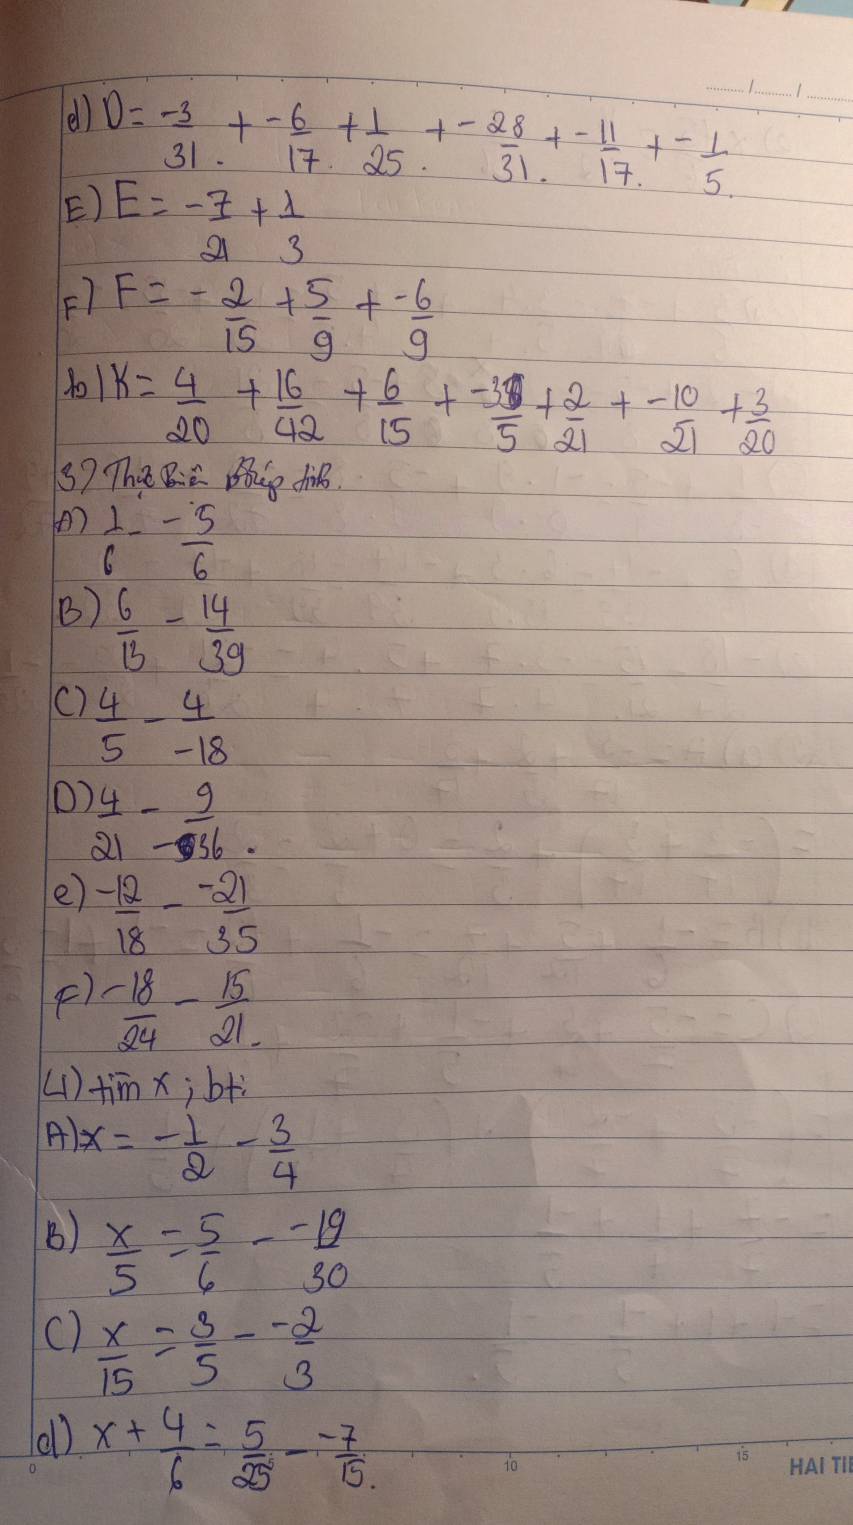 d) D = -3/31 + -6/17 + 1/25 + -28/31 + -11/17 + -1/5
E) E = -7/21 + 1/3
F) F = -2/15 + 5/9 + -6/9
b) K = 4/20 + 16/42 + 6/15 + /5 + 2/21 + -10/21 + 3/20
3) Thực hiện phép tính.
A) 1/6 - -5/6
B) 6/13 - 14/39
C) 4/5 - 4/-18
D) 4/21 - 9/-36.
e) -12/18 - -21/35
F) -18/24 - 15/21.
4) tìm x; bt:
A) x = -1/2 - 3/4
B) x/5 = 5/6 - -19/30
C) x/15 = 3/5 - -2/3
d) x + 4/6 = 5/25 - -7/15.
0 5 10 15 HAI TIẾ